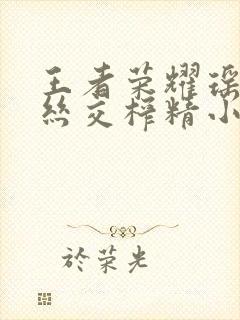 王者荣耀瑶
丝交榨精小
於荣光